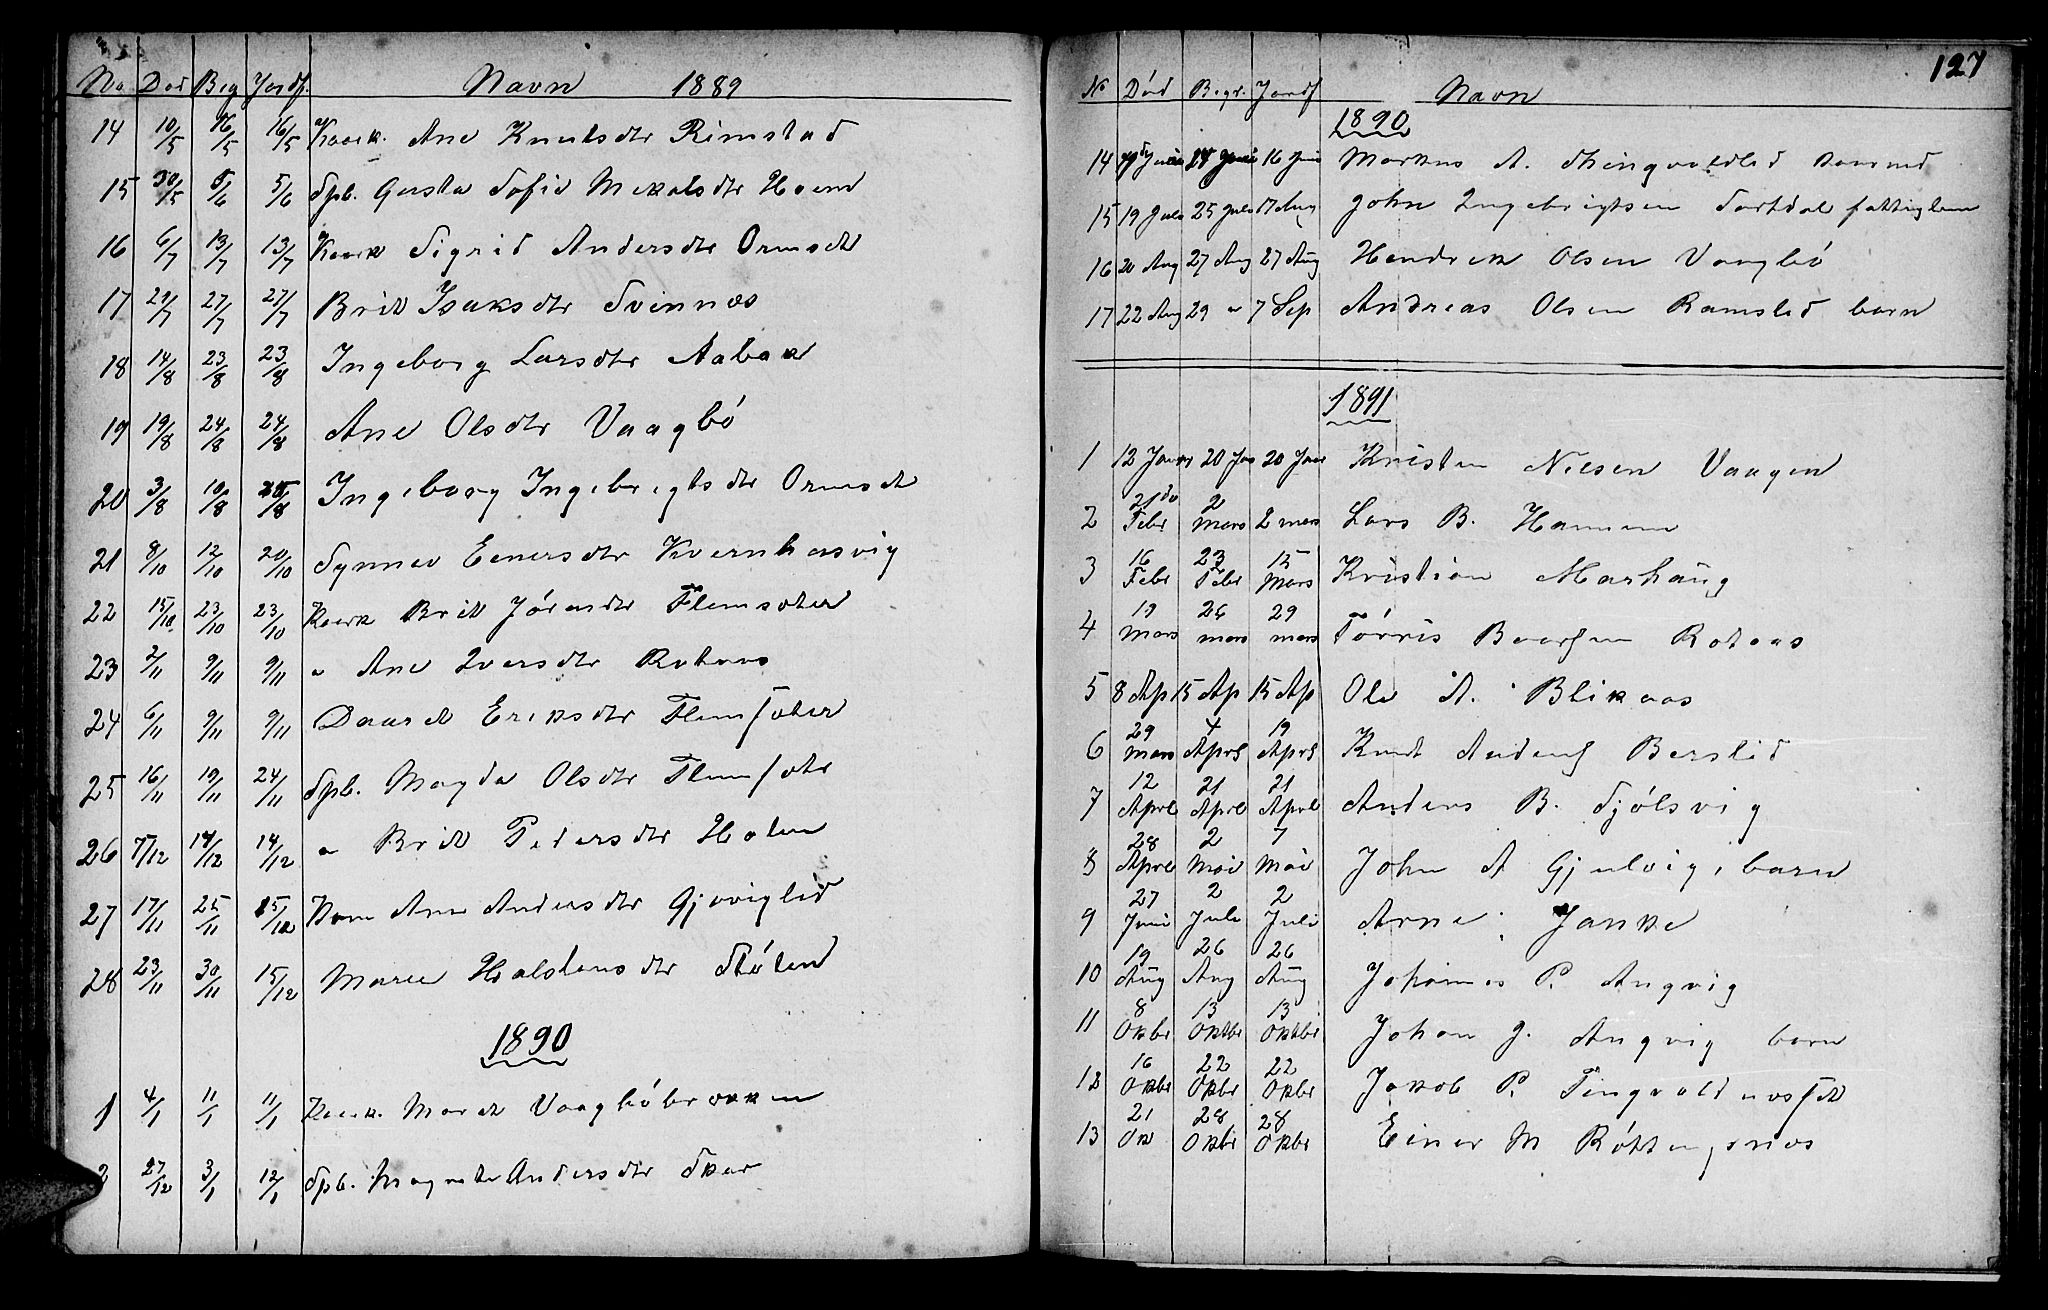 No Død Beg Jordf. Navn 1889
14 10/5 16/5 16/5 Kaark. Ane Knutsdtr Rimstad
15 30/5 5/6 5/6 Spb. Gusta Sofie Mekalsdtr Hoem
16 6/7 13/7 13/7 Kaark Sigrid Andersdtr Ormset
17 21/7 27/7 27/7 Brit Isaksdtr Svinnes
18 14/8 23/8 23/8 Ingeborg Larsdtr Aabak
19 19/8 24/8 24/8 Ane Olsdtr Vaagbø
20 3/8 10/8 /8 Ingeborg Ingebrigtsdtr Ormset
21 8/10 12/10 20/10 Synnev Einersdtr Kvernhusvig
22 15/10 23/10 23/10 Kaark Brit Jørendtr Flemsæter
23 2/11 9/11 9/11 " Ane Iversdtr Rotaas
24 6/11 9/11 9/11 Daaret Eriksdtr Flemsæter
25 16/11 19/11 24/11 Spb. Magda Olsdtr Flemsætr
26 7/12 14/12 14/12 " Brit Pedersdtr Holen
27 17/11 25/11 15/12 Kone Ane Andersdtr Gjøviglid
28 23/11 30/11 15/12 Marie Halstensdtr Stølen
1890
1 4/1 11/1 11/1 Kaark. Maret Vaagbøbrækken
2 27/12 3/1 12/1 Spb. Magnete Andersdtr Skar
127
No Død Begr. Jordf Navn
1890
14 Juni Juni 16 Juni Markus A. Thingvoldlid
15 19 Juli 25 Juli 17 Aug John Ingebrigtsen Sartdal fattiglem
16 20 Aug 27 Aug 27 Aug Hendrik Olsen Vaagbø
17 22 Aug 29 " 7 Sep Andreas Olsen Ramslid barn
1891
1 12 Januar 20 Jan 20 Jan Kristen Nilsen Vaagen
2 21de Febr 2 Mars 2 mars Lars B. Hammen
3 16 Febr 23 Febr 15 Mars Kristian Marhaug
4 19 Mars 26 mars 29 mars Tørris Baarsen Rotaas
5 8 Ap 15 Ap 15 Ap Ole A. Blikaas
6 29 Mars 4 Aprl 19 Aprl Knut Anders Berslid
7 12 Aprl 21 Aprl 21 Aprl Anders B. Sjølsvig
8 28 Aprl 2 Mai 7 Mai John A Gjulvig, barn
9 27 Juni 2 Juli 2 Juli Arne Janke
10 19 Aug 26 Aug 26 Aug Johannes P. Angvig
11 8 Okbr 13 Oktbr 13 Oktbr Johan J. Angvig barn
12 16 Okbr 22 Okbr 22 Okbr Jakob P. Tingvoldnesset
13 21 Ok 28 Okbr 28 Okbr Einer M Røttingsnæs